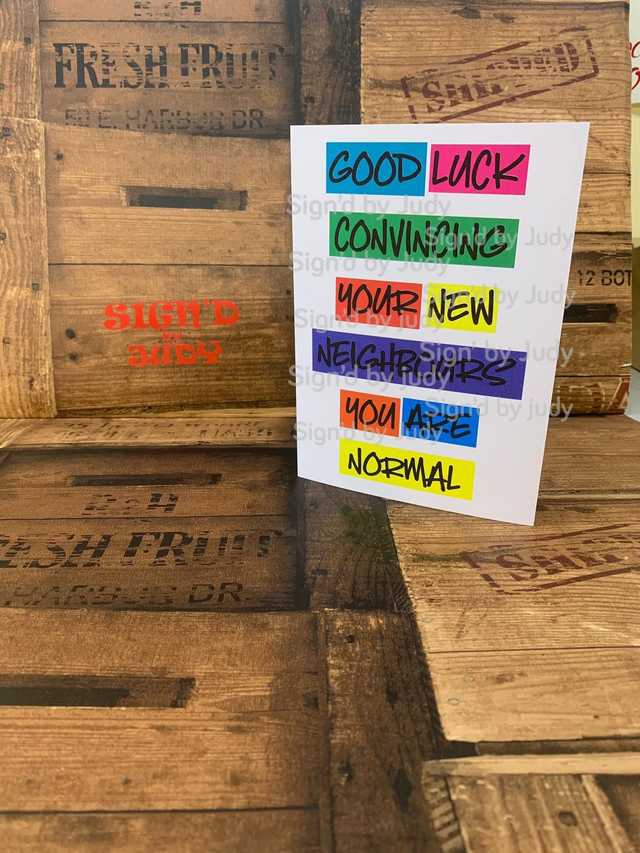 R & H
FRESH FRUIT
50 E. HARBOR DR.
SIGN'D
by
JUDY
GOOD LUCK
CONVINCING
YOUR NEW
NEIGHBOURS
YOU ARE
NORMAL
Sign'd by Judy
Sign'd by Judy
Sign'd by Judy
Sign'd by Judy
Sign'd by Judy
Sign'd by Judy
Sign'd by Judy
Sign'd by Judy
Sign'd by judy
12 BOT
R & H
ESH FRUIT
HARBOR DR.